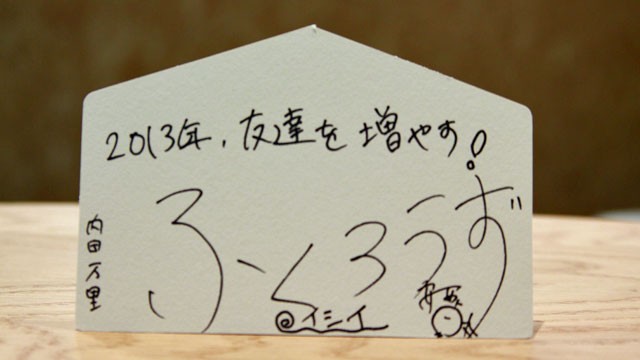 2013年、友達を増やす!
内田万里
ふくろうず
@イシイ
安西